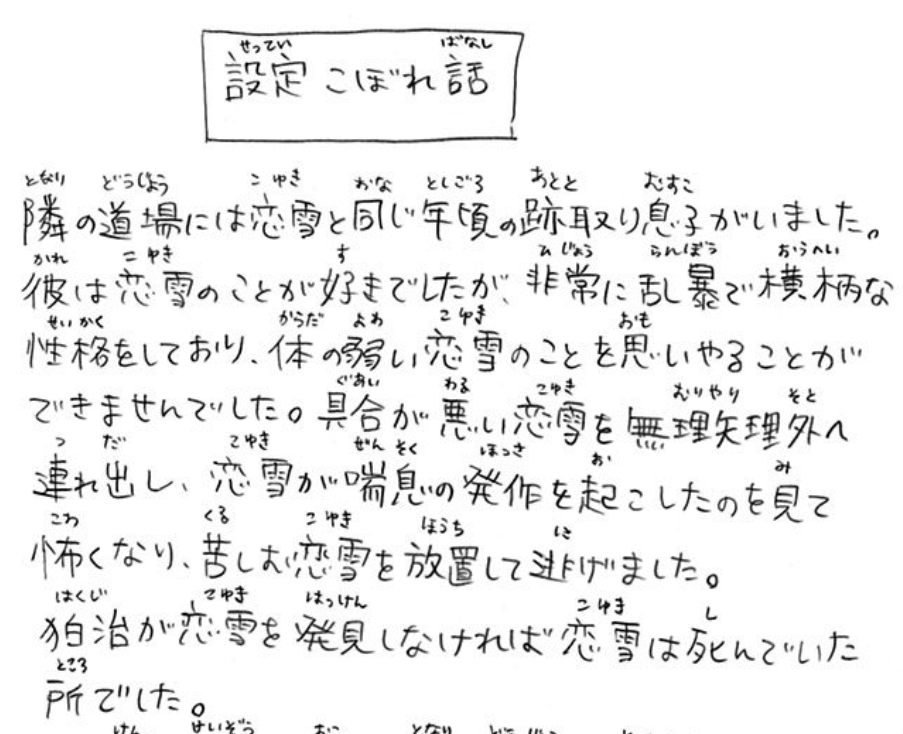 設定こぼれ話
隣の道場には恋雪と同じ年頃の跡取り息子がいました。
彼は恋雪のことが好きでしたが、非常に乱暴で横柄な
性格をしており、体の弱い恋雪のことを思いやることが
できませんでした。具合が悪い恋雪を無理矢理外へ
連れ出し、恋雪が喘息の発作を起こしたのを見て
怖くなり、苦しむ恋雪を放置して逃げました。
狛治が恋雪を発見しなければ恋雪は死んでいた
所でした。